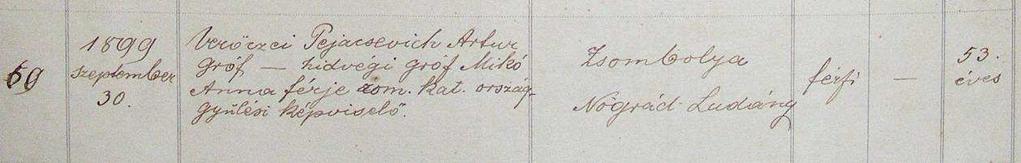 69
1899
szeptember
30.
Verőczei Pejacsevich Artur
gróf — hidvégi gróf Mikó
Anna férje rom. kat. ország-
gyűlési képviselő.
Zsombolya
Nógrád-Ludány
férfi
—
53.
éves